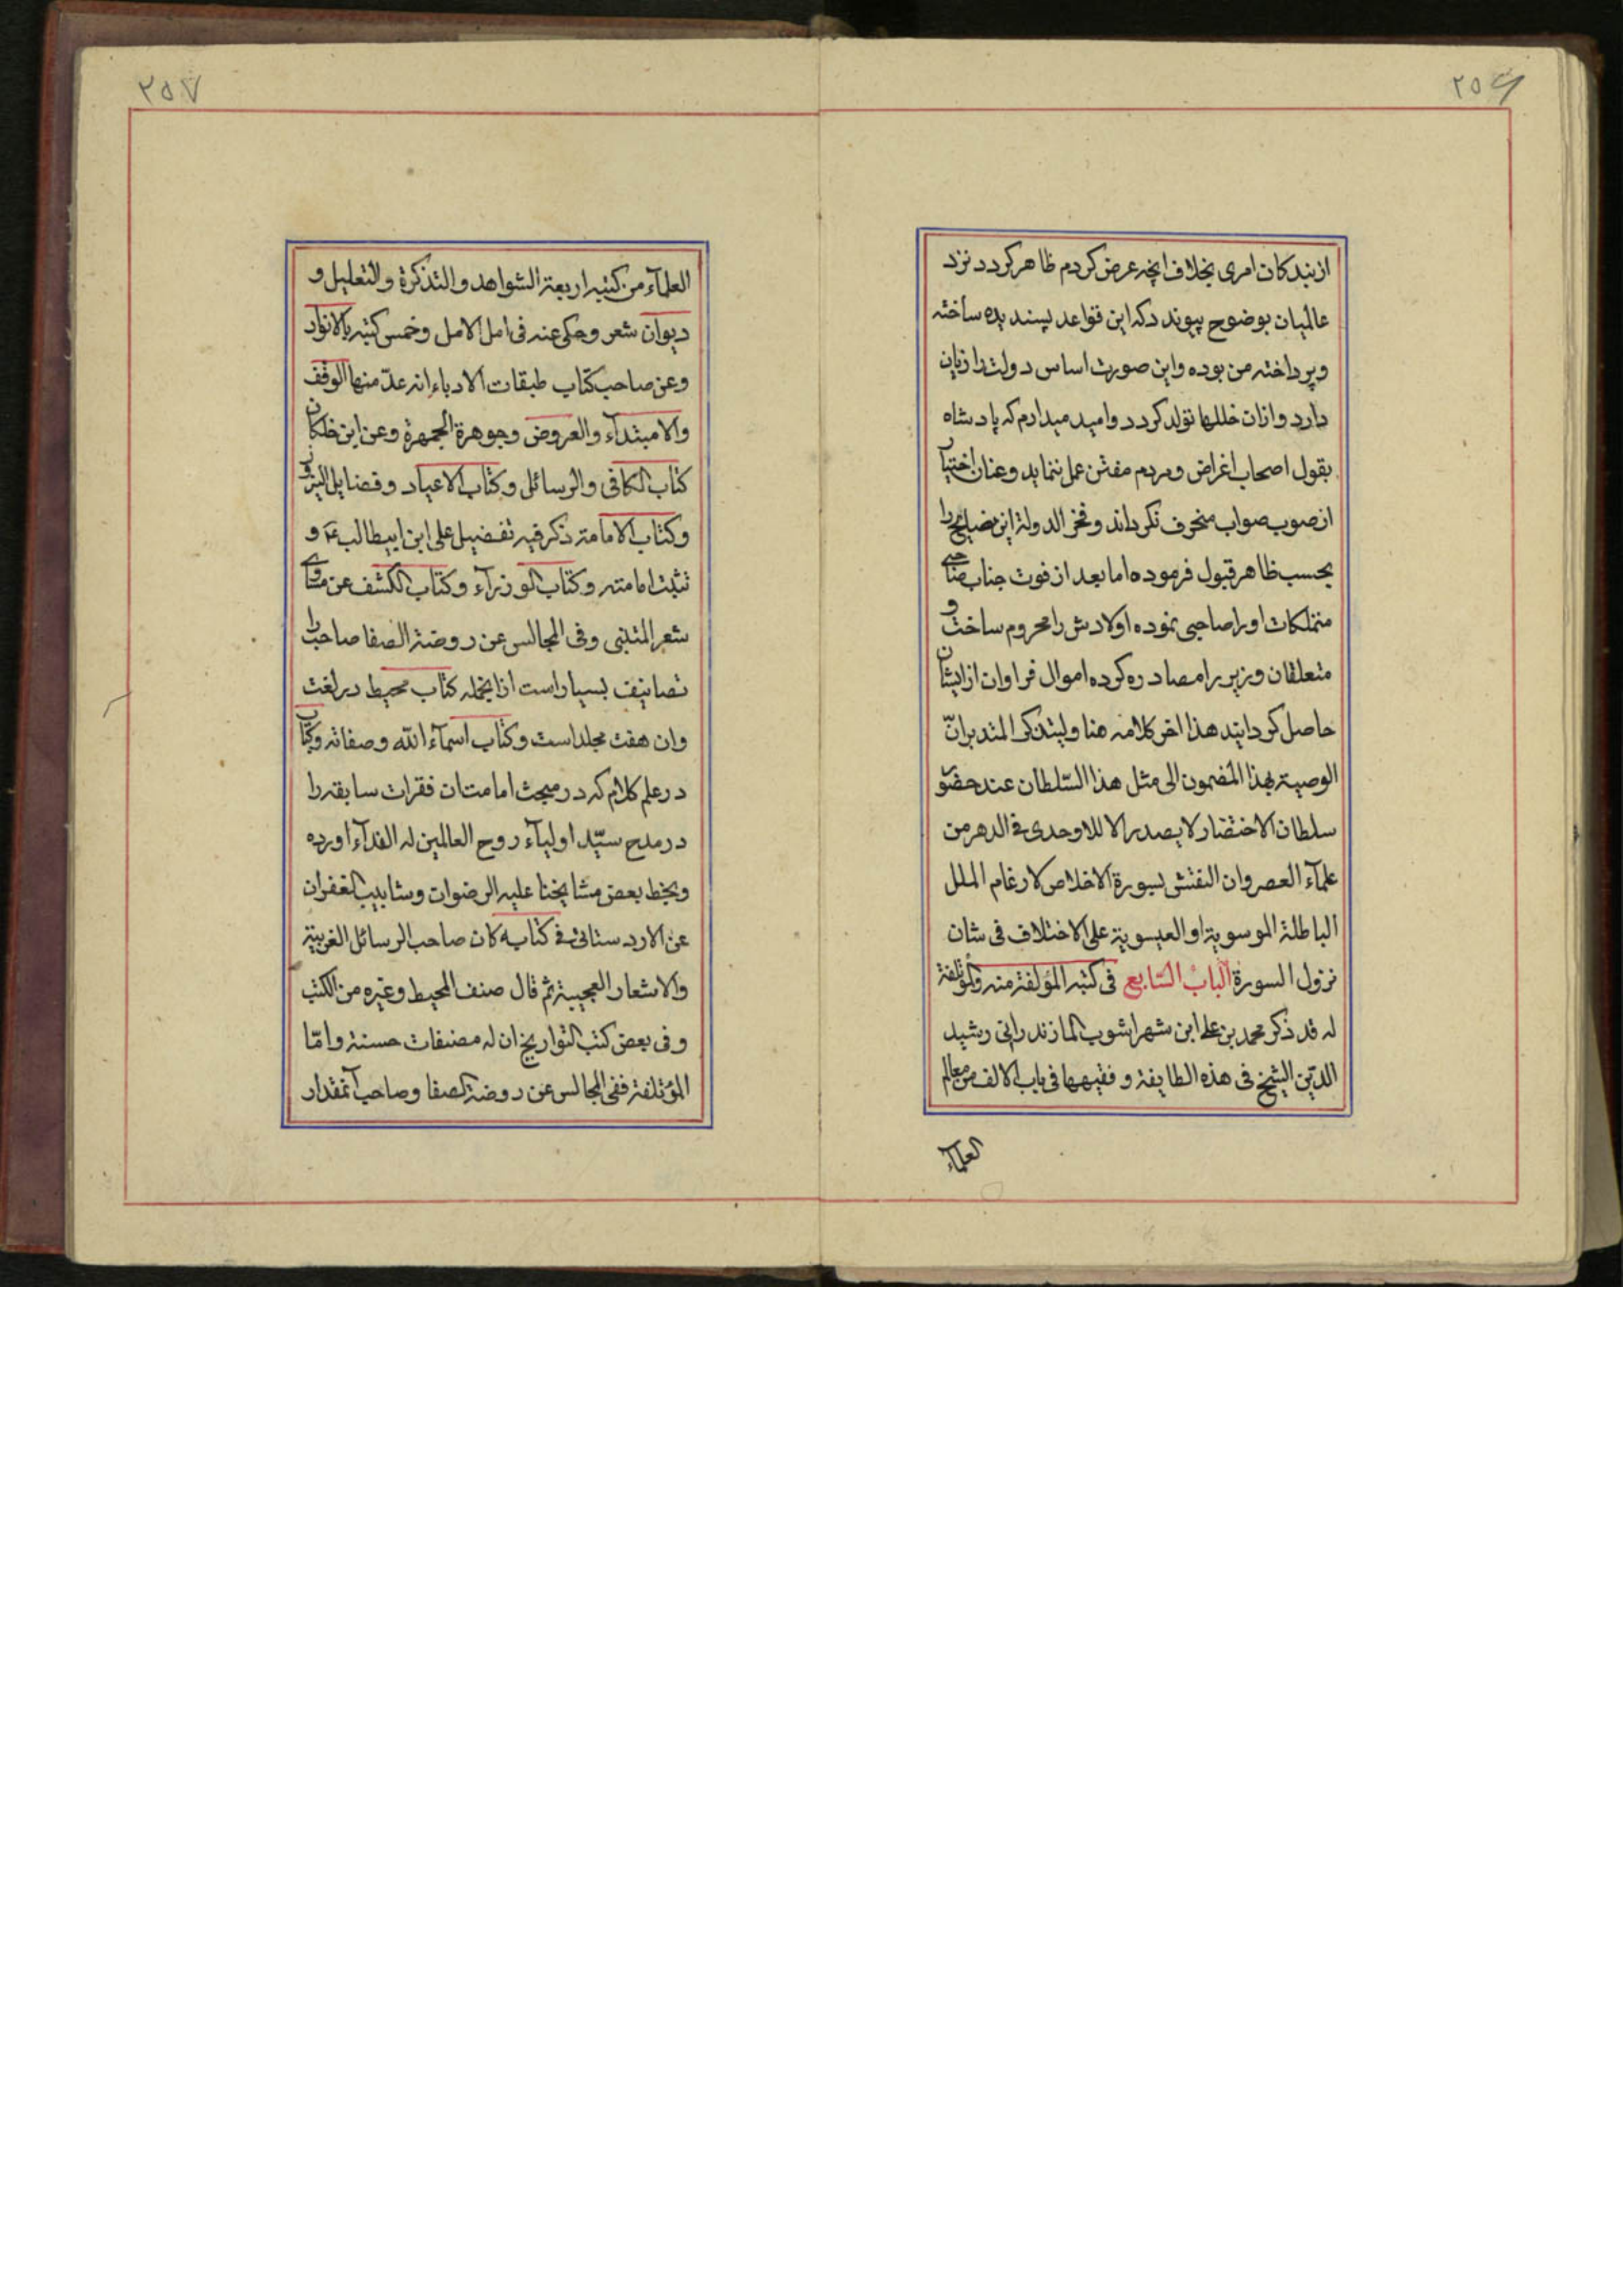 ٢٥٦
از بندکان امری بخلاف انچه عرض کردم ظاهر کردد نزد
عالمیان بوضوح پیوندد که این قواعد پسندیده ساخته
وپرداخته من بوده واین صورت اساس دولت را زیان
دارد وازان خللها تولد کردد وامید میدارم که پادشاه
بقول اصحاب اغراض ومردم مفتن عمل ننماید وعنان اختیار
از صوب صواب منحرف نکرداند وفخر الدولة این نصایح را
بحسب ظاهر قبول فرموده اما بعد از فوت جناب صاحبی
متملکات او را صاحبی نموده اولادش را محروم ساخت و
متعلقان وزیر را مصادره کرده اموال فراوان از ایشان
حاصل کردانید هذا اخر کلامه هنا ولیتذکر المتدبر انّ
الوصیة بهذا المضمون الی مثل هذا السّلطان عند حضور
سلطان الاختضار لا یصدر الا للاوحدی فی الدهر من
علمآء العصر وان النقش بسورة الاخلاص لارغام الملل
الباطلة الموسویة او العیسویة علی الاختلاف فی شان
نزول السورة الباب السّابع فی کتبه المؤلفة منه والمؤتلفة
له قد ذکر محمد بن علی ابن شهراشوب المازندرانی رشید
الدّین الشیخ فی هذه الطایفة و فقیهها فی باب الالف من معالم
العلمآء
٢٥٧
العلمآء من کتبه اربعة الشواهد والتذکرة والتعلیل و
دیوان شعر وحکی عنه فی امل الامل وخمس کتبه بالانوار
وعن صاحب کتاب طبقات الادباء انه عدّ منها الوقف
والامبتدآء والعروض وجوهرة الجمهرة وعن ابن خلکان
کتاب الکافی والرسائل وکتاب الاعیاد وفضایل النیروز
وکتاب الامامة ذکر فیه تفضیل علی ابن ابیطالب ع و
تثبت امامته وکتاب الوزرآء وکتاب الکشف عن مساوی
شعر المتنبی وفی المجالس عن روضة الصفا صاحب را
تصانیف بسیار است از انجمله کتاب محیط در لغت
وان هفت مجلد است وکتاب اسمآء الله وصفاته وکتاب
در علم کلام که در مبحث امامت ان فقرات سابقه را
در مدح سیّد اولیآء روح العالمین له الفدآء اورده
وبخط بعض مشایخنا علیه الرضوان وشابیب الغفران
عن الاردستانی فی کتابه کان صاحب الرسائل الغریبة
والاشعار العجیبة ثم قال صنف المحیط وغیره من الکتب
وفی بعض کتب التواریخ ان له مصنفات حسنة وامّا
المؤتلفة ففی المجالس عن روضة الصفا وصاحب آنمقدار